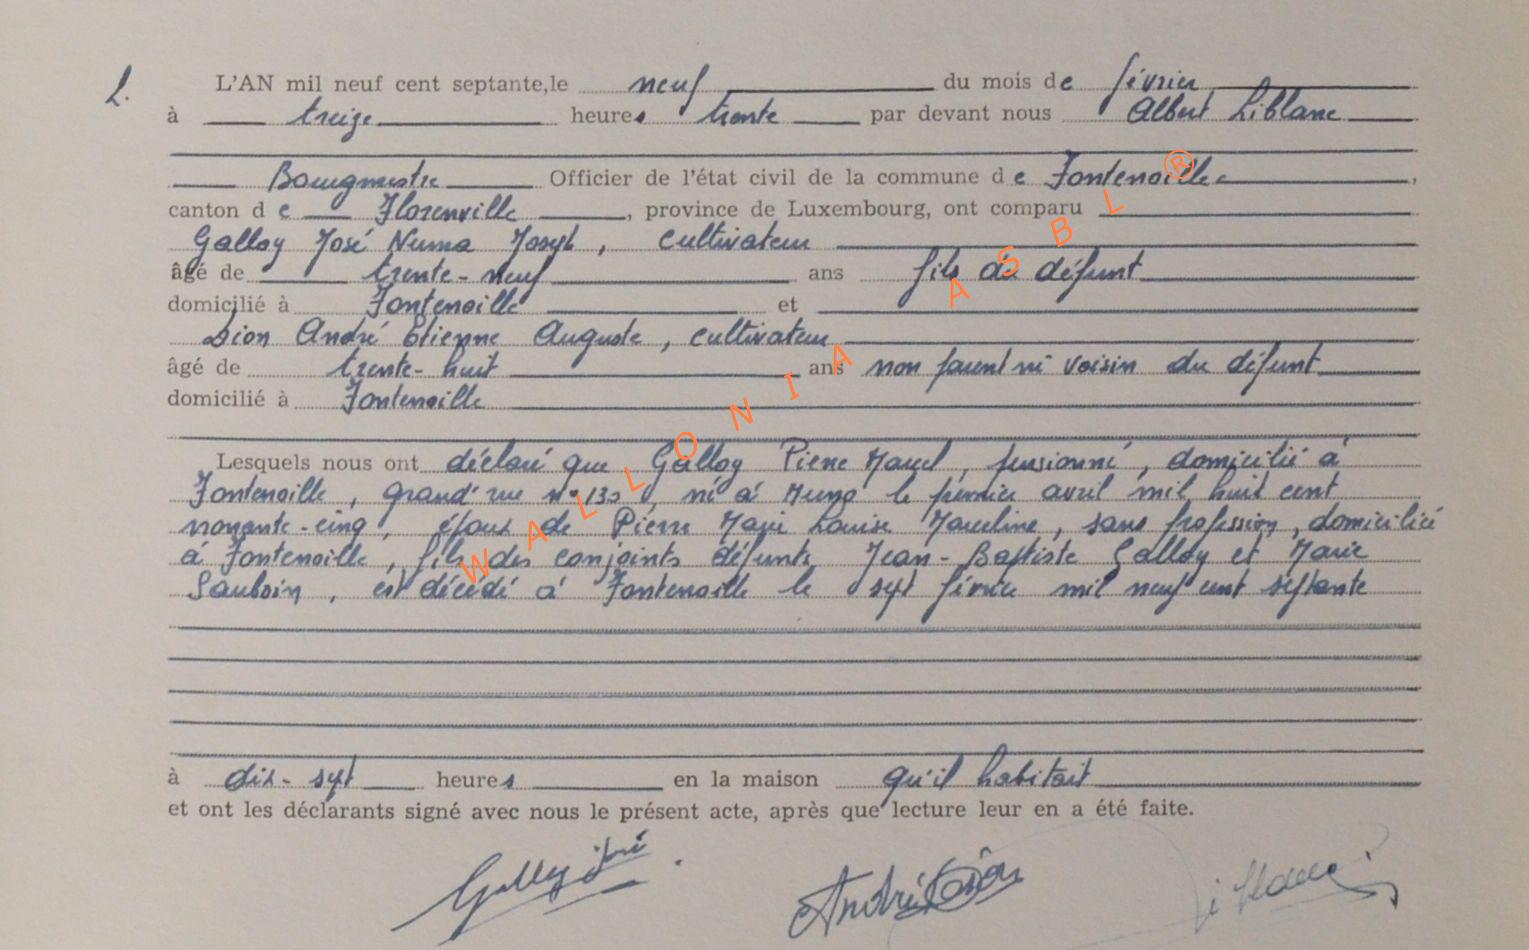 2. L'AN mil neuf cent septante, le neuf du mois de février
à treize heures trente par devant nous Albert Liblanc
Bourgmestre Officier de l'état civil de la commune de Fontenoille,
canton de Florenville, province de Luxembourg, ont comparu
Galloy José Numa Joseph, cultivateur
âgé de trente-neuf ans fils du défunt
domicilié à Fontenoille et
Dion André Etienne Auguste, cultivateur
âgé de trente-huit ans non parent ni voisin du défunt
domicilié à Fontenoille
Lesquels nous ont déclaré que Galloy Pierre Marcel, pensionné, domicilié à
Fontenoille, grand'rue n° 130, né à Muno le premier avril mil huit cent
nonante-cinq, époux de Pierre Marie Louise Marceline, sans profession, domiciliée
à Fontenoille, fils des conjoints défunts Jean-Baptiste Galloy et Marie
est décédé à Fontenoille le sept février mil neuf cent septante
à dix-sept heures en la maison qu'il habitait
et ont les déclarants signé avec nous le présent acte, après que lecture leur en a été faite.
Galloy José
André Dion
Liblanc
WALLONIA ASBL®